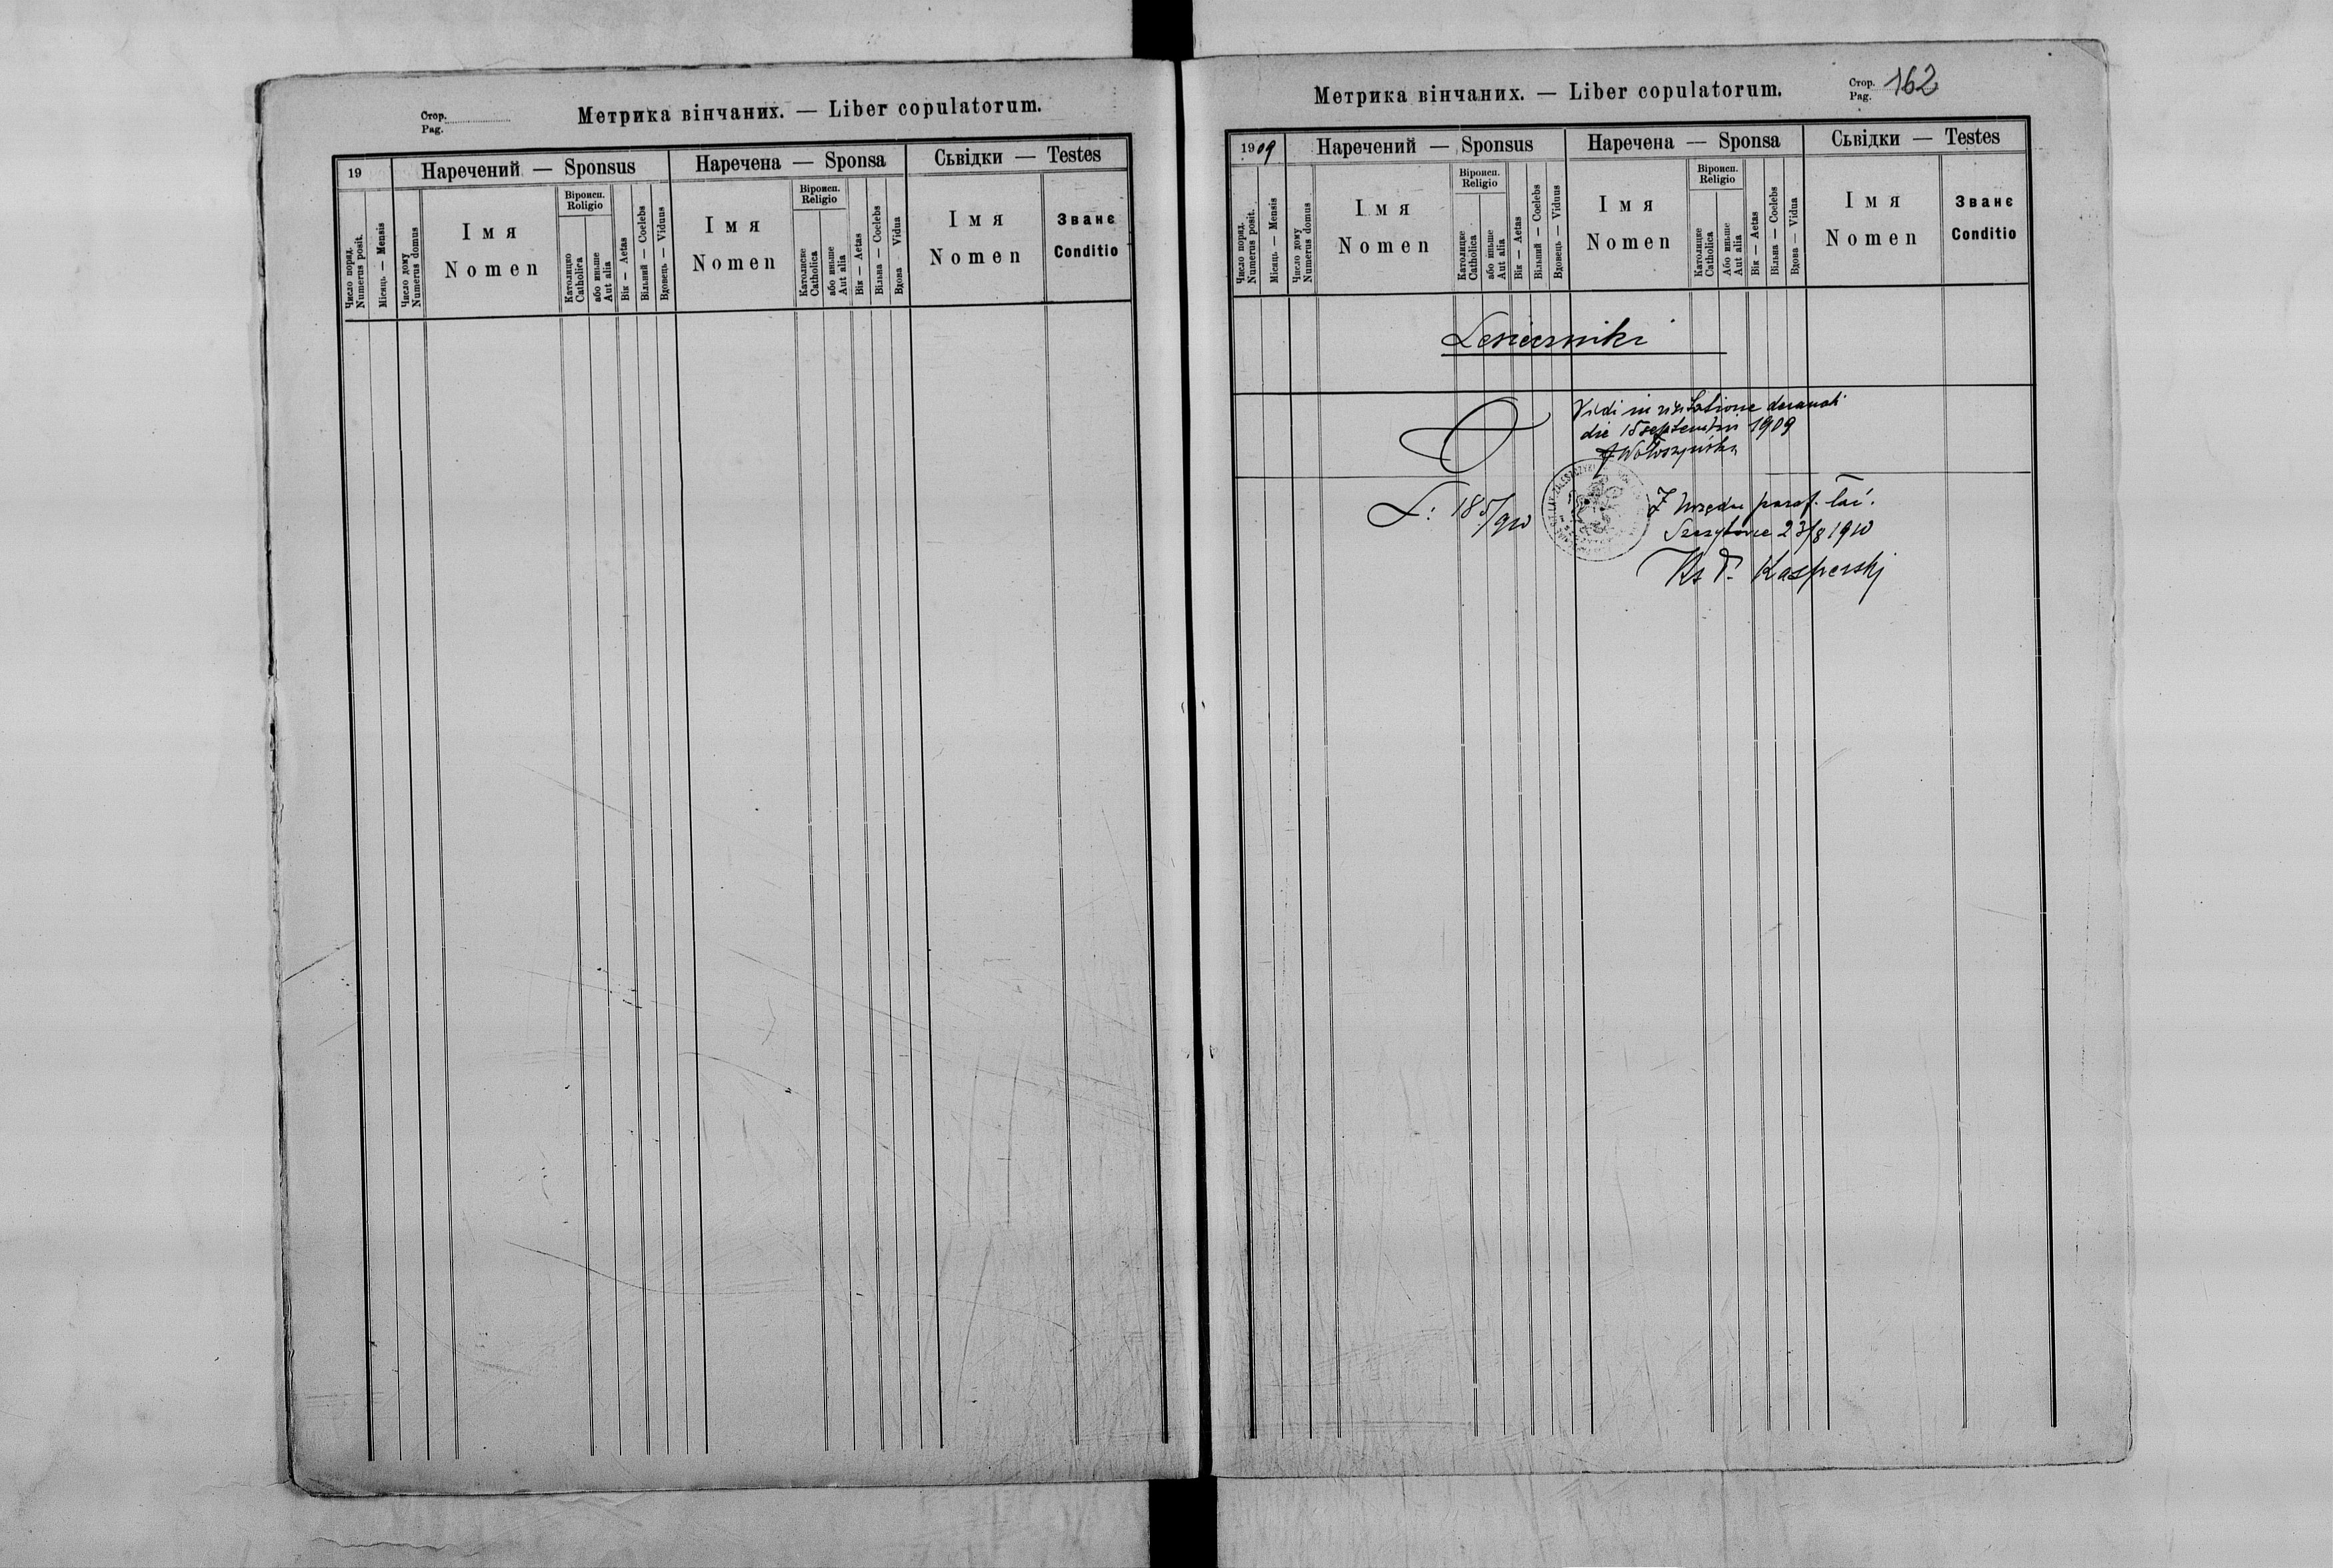 Стор.
Pag.
Метрика вінчаних. — Liber copulatorum.
19
Наречений — Sponsus
Наречена — Sponsa
Сьвідки — Testes
Число поряд.
Numerus posit.
Місяць — Mensis
Число дому
Numerus domus
Імя
Nomen
Віроисп.
Religio
Католицке
Catholica
або иньше
Aut alia
Вік — Aetas
Вільний — Coelebs
Вдовець — Viduus
Імя
Nomen
Віроисп.
Religio
Католицке
Catholica
або иньше
Aut alia
Вік — Aetas
Вільна — Coelebs
Вдова — Vidua
Імя
Nomen
Званє
Conditio
Метрика вінчаних. — Liber copulatorum.
Стор.
Pag.
162
1909
Наречений — Sponsus
Наречена — Sponsa
Сьвідки — Testes
Число поряд.
Numerus posit.
Місяць — Mensis
Число дому
Numerus domus
Імя
Nomen
Віроисп.
Religio
Католицке
Catholica
або иньше
Aut alia
Вік — Aetas
Вільний — Coelebs
Вдовець — Viduus
Імя
Nomen
Віроисп.
Religio
Католицке
Catholica
Або иньше
Aut alia
Вік — Aetas
Вільна — Coelebs
Вдова — Vidua
Імя
Nomen
Званє
Conditio
Lesieczniki
Vidi in visitatione decanali
die 15 septembris 1909
L: 185/910
Z Urzędu paraf. łać.
23/8 1910
Ks F. Kasperski